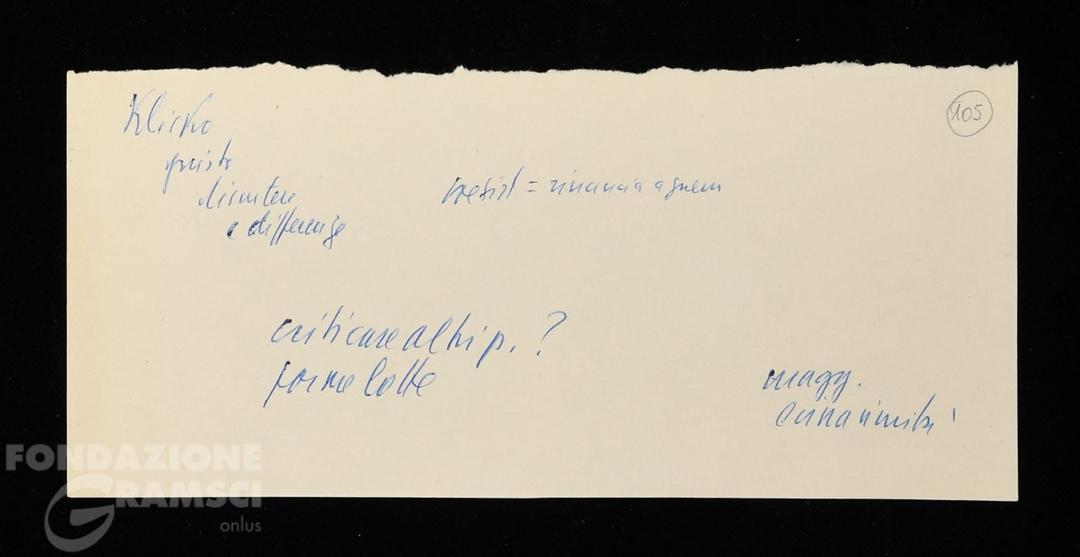 105
Kliszko
giusto
discutere
e differenze
coesist = rinuncia a guerra
criticare altri p. ?
forme lotte
magg.
e unanimità
FONDAZIONE
GRAMSCI
onlus